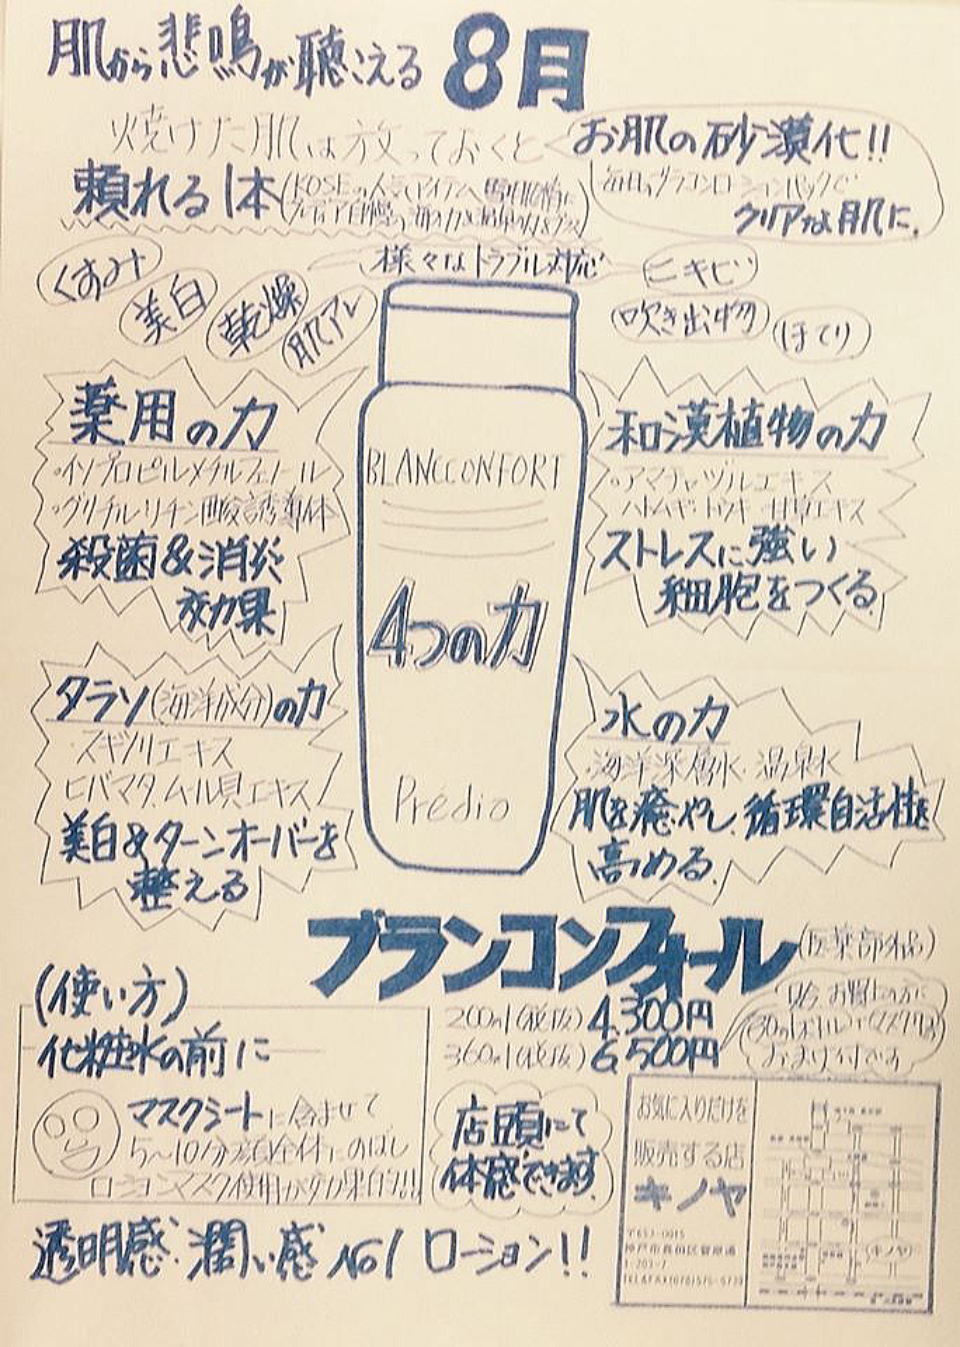 肌から悲鳴が聴こえる 8月
焼けた肌は放っておくと
お肌の砂漠化!!
頼れる1本
毎日のブランコンローションパックで
クリアな肌に。
様々なトラブル対応
くすみ
美白
乾燥
肌アレ
ニキビ
吹き出物
ほてり
薬用の力
・イソプロピルメチルフェノール
・グリチルリチン酸誘導体
殺菌&消炎
効果
和漢植物の力
・アマチャヅルエキス
ハトムギ・トウキ・甘草エキス
ストレスに強い
細胞をつくる
BLANCCONFORT
4つの力
Prédio
タラソ(海洋成分)の力
・スギノリエキス
ヒバマタ、ムール貝エキス
美白&ターンオーバーを
整える
水の力
・海洋深層水・温泉水
肌を癒やし、循環自活性を
高める。
ブランコンフォール(医薬部外品)
200ml(税抜) 4,300円
360ml(税抜) 6,500円
只今お買上の方に
おまけ付です
(使い方)
化粧水の前に
マスクシートに含ませて
5~10分顔全体にのばし
ローションマスク使用が効果的!!
店頭にて
体感できます
透明感・潤い感 No1 ローション!!
お気に入りだけを
販売する店
キノヤ
〒653-0015
神戸市長田区菅原通